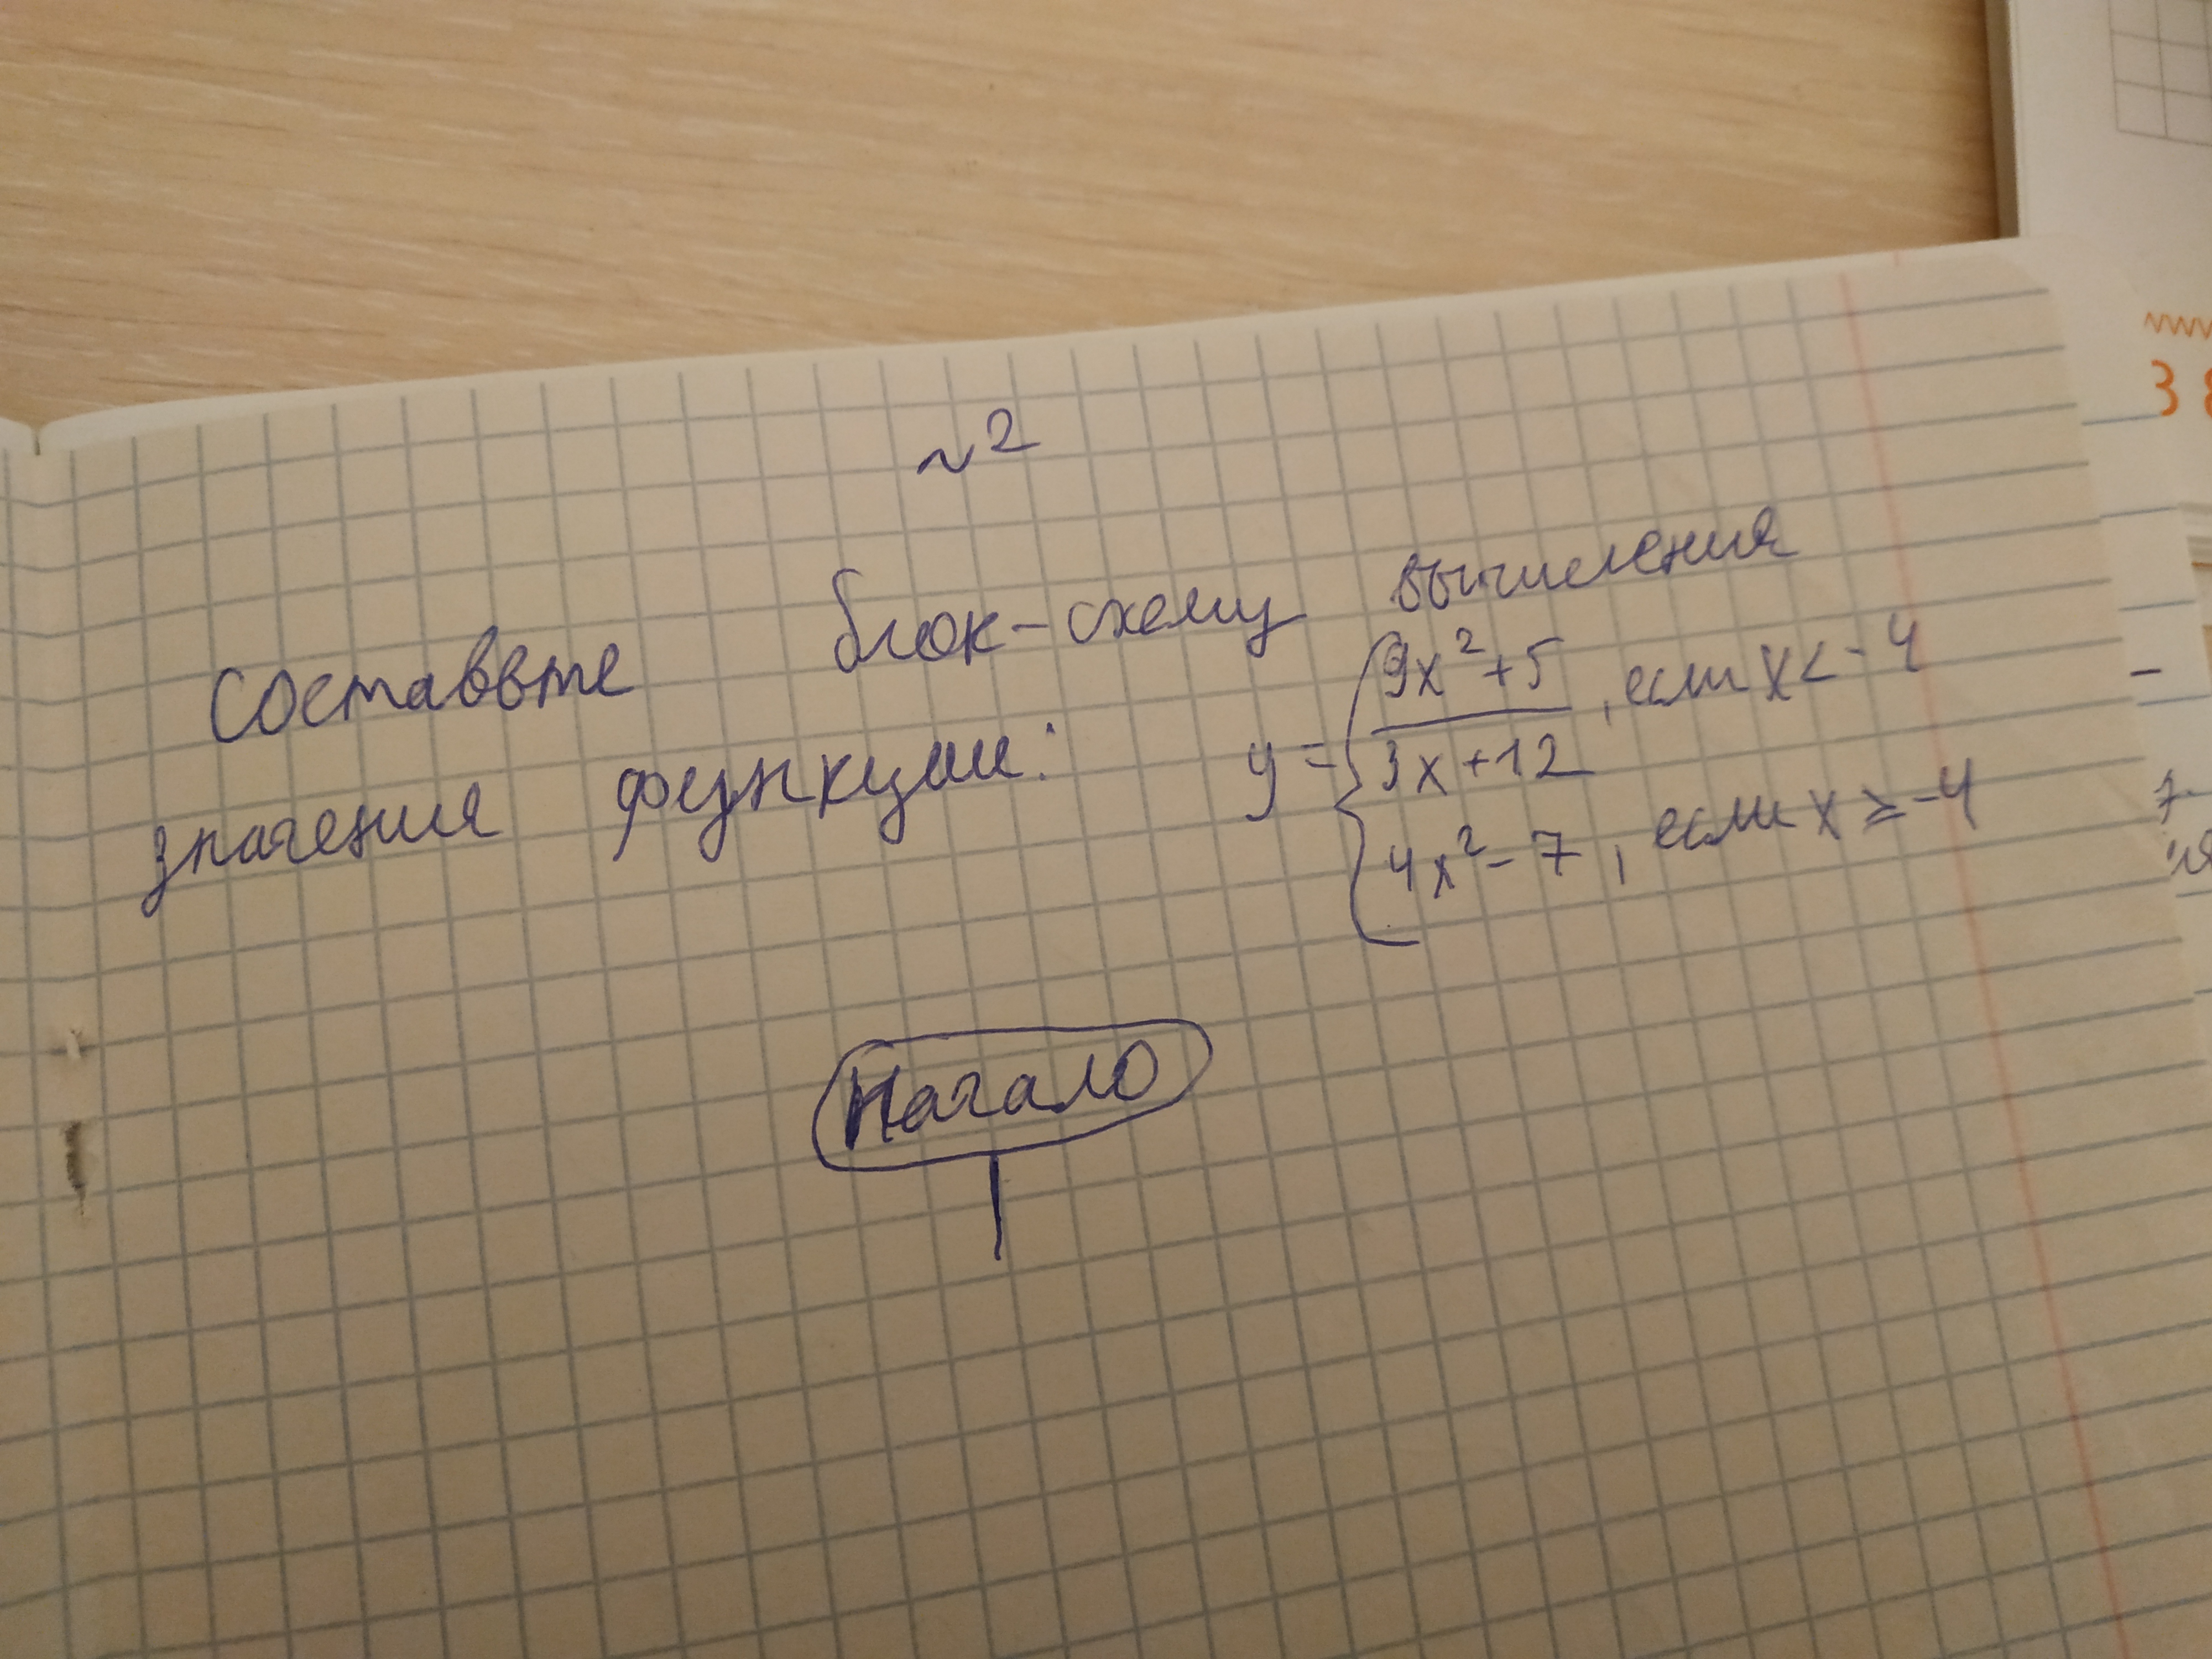 ~2
Составвте блок-схему вычисления
значения функции: y = { 9x²+5 / 3x+12 , если x < -4
4x² - 7 , если x ≥ -4
Начало
3